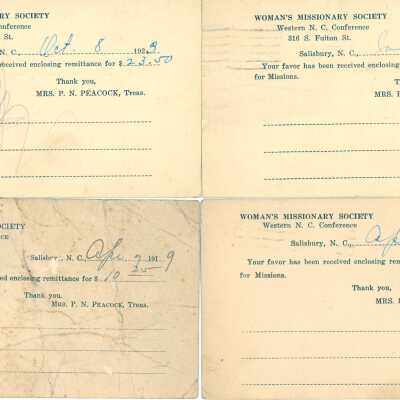 RY SOCIETY
ference
St.
N. C., Oct. 8 1929
received enclosing remittance for $ 23.50
Thank you,
MRS. P. N. PEACOCK, Treas.
WOMAN'S MISSIONARY SOCIETY
Western N. C. Conference
316 S. Fulton St.
Salisbury, N. C.,
Your favor has been received enclosing
for Missions.
Thank
MRS.
SOCIETY
NCE
Salisbury, N. C., Apr. 7 1919
ved enclosing remittance for $ 10
Thank you.
MRS. P. N. PEACOCK, Treas.
WOMAN'S MISSIONARY SOCIETY
Western N. C. Conference
Salisbury, N. C.,
Your favor has been received enclosing remit
for Missions.
Thank
MRS.